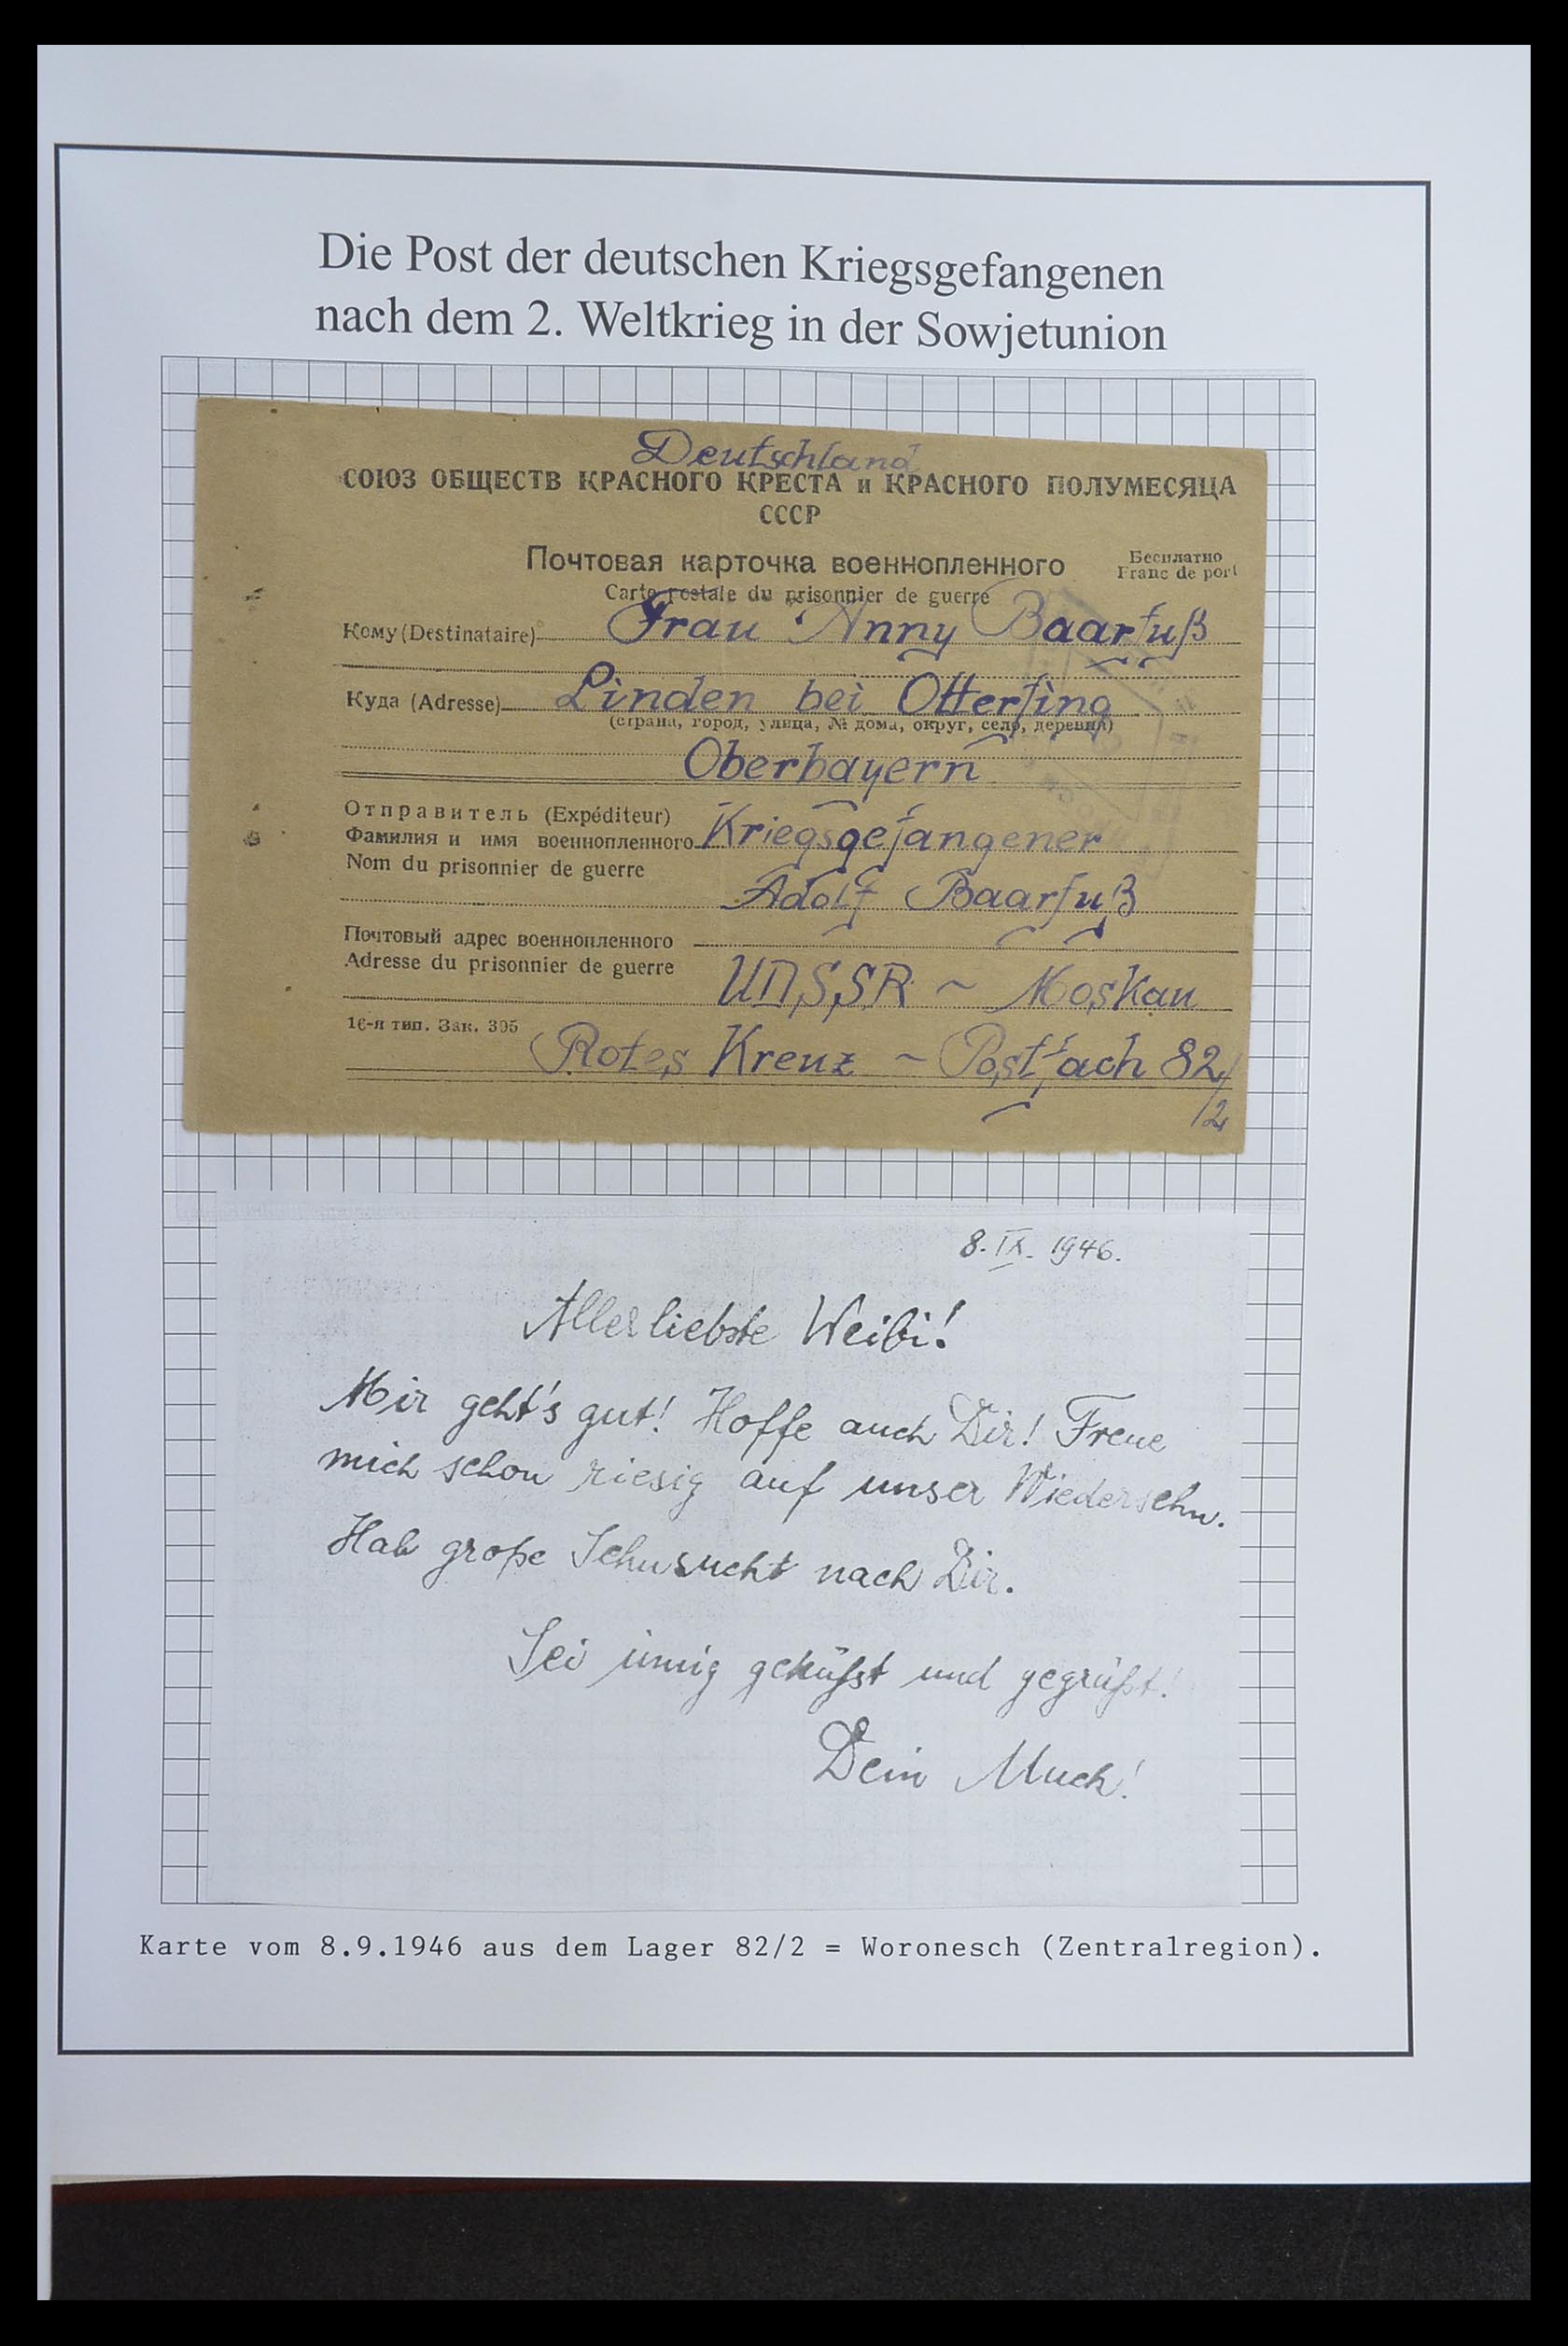 Die Post der deutschen Kriegsgefangenen
nach dem 2. Weltkrieg in der Sowjetunion
Deutschland
СОЮЗ ОБЩЕСТВ КРАСНОГО КРЕСТА и КРАСНОГО ПОЛУМЕСЯЦА
СССР
Почтовая карточка военнопленного
Бесплатно
Franc de port
Carte postale du prisonnier de guerre
Кому (Destinataire) Frau Anny Baarfuß
Куда (Adresse) Linden bei Otterfing
(страна, город, улица, № дома, округ, село, деревня)
Oberbayern
Отправитель (Expéditeur)
Фамилия и имя военнопленного Kriegsgefangener
Nom du prisonnier de guerre
Adolf Baarfuß
Почтовый адрес военнопленного
Adresse du prisonnier de guerre
UDSSR ~ Moskau
16-я тип. Зак. 395
Rotes Kreuz ~ Postfach 82/
/2
8. IX. 1946.
Allerliebste Weibi!
Mir geht's gut! Hoffe auch Dir! Freue
mich schon riesig auf unser Wiedersehn.
Hab große Sehnsucht nach Dir.
Sei innig geküßt und gegrüßt!
Dein Much!
Karte vom 8.9.1946 aus dem Lager 82/2 = Woronesch (Zentralregion).